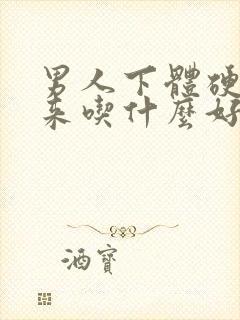 男人下體硬
來喫什麼好
酒寶